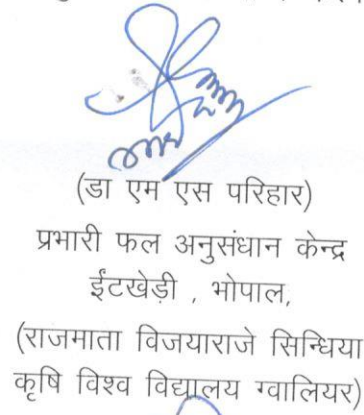 (डा एम एस परिहार)
प्रभारी फल अनुसंधान केन्द्र
ईंटखेड़ी , भोपाल,
(राजमाता विजयाराजे सिन्धिया
कृषि विश्व विद्यालय ग्वालियर)